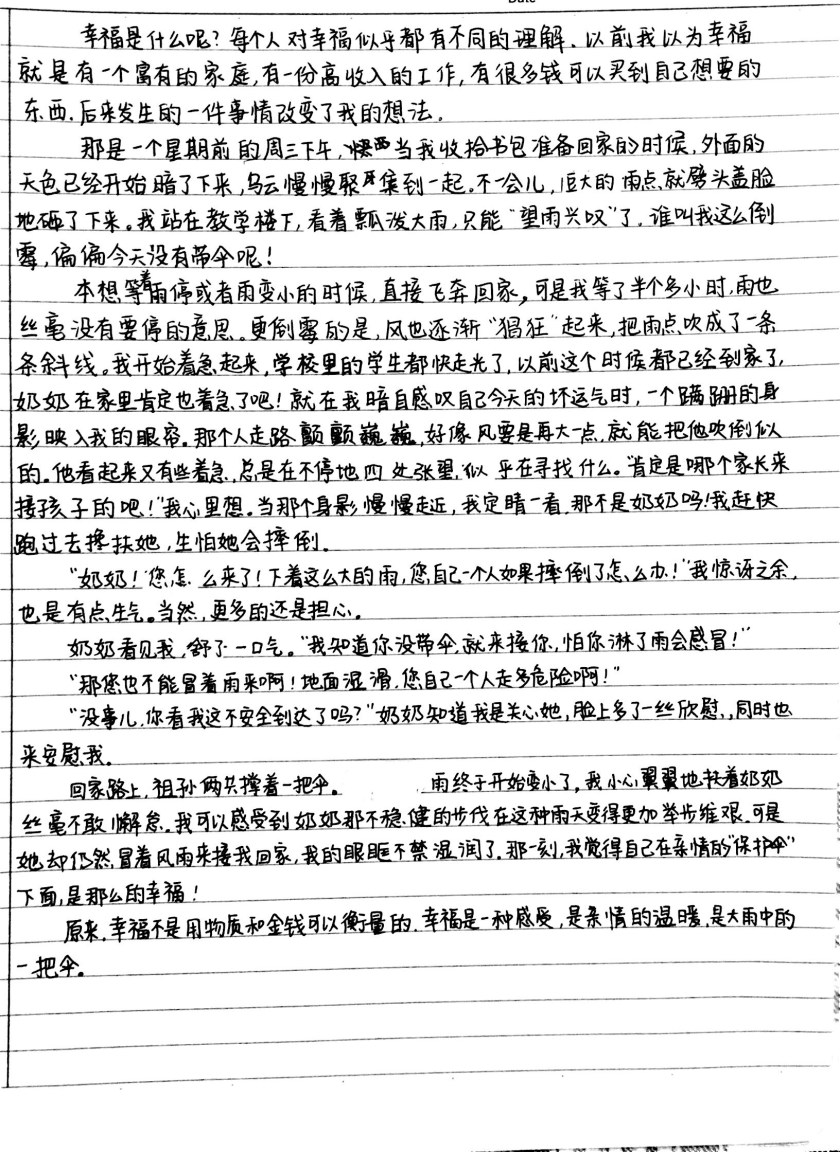 Date
幸福是什么呢？每个人对幸福似乎都有不同的理解．以前我以为幸福
就是有一个富有的家庭，有一份高收入的工作，有很多钱可以买到自己想要的
东西．后来发生的一件事情改变了我的想法．
那是一个星期前的周三下午，当我收拾书包准备回家的时候，外面的
天色已经开始暗了下来，乌云慢慢聚集到一起。不一会儿，豆大的雨点就劈头盖脸
地砸了下来。我站在教学楼下，看着瓢泼大雨，只能“望雨兴叹”了．谁叫我这么倒
霉，偏偏今天没有带伞呢！
本想等着雨停或者雨变小的时候，直接飞奔回家，可是我等了半个多小时，雨也
丝毫没有要停的意思。更倒霉的是，风也逐渐“猖狂”起来，把雨点吹成了一条
条斜线。我开始着急起来，学校里的学生都快走光了，以前这个时候都已经到家了，
奶奶在家里肯定也着急了吧！就在我暗自感叹自己今天的坏运气时，一个蹒跚的身
影映入我的眼帘。那个人走路颤颤巍巍，好像风要是再大一点，就能把他吹倒似
的。他看起来又有些着急，总是在不停地四处张望，似乎在寻找什么。“肯定是哪个家长来
接孩子的吧！”我心里想。当那个身影慢慢走近，我定睛一看，那不是奶奶吗！我赶快
跑过去搀扶她，生怕她会摔倒．
“奶奶！您怎么来了！下着这么大的雨，您自己一个人如果摔倒了怎么办！”我惊讶之余，
也是有点生气。当然，更多的还是担心．
奶奶看见我，舒了一口气。“我知道你没带伞，就来接你，怕你淋了雨会感冒！”
“那您也不能冒着雨来啊！地面湿滑，您自己一个人走多危险啊！”
“没事儿，你看我这不安全到达了吗？”奶奶知道我是关心她，脸上多了一丝欣慰，同时也
来安慰我．
回家路上，祖孙俩共撑着一把伞。雨终于开始变小了，我小心翼翼地扶着奶奶
丝毫不敢懈怠．我可以感受到奶奶那不稳健的步伐在这种雨天变得更加举步维艰．可是
她却仍然冒着风雨来接我回家，我的眼眶不禁湿润了．那一刻，我觉得自己在亲情的“保护伞”
下面，是那么的幸福！
原来，幸福不是用物质和金钱可以衡量的．幸福是一种感受，是亲情的温暖，是大雨中的
一把伞。